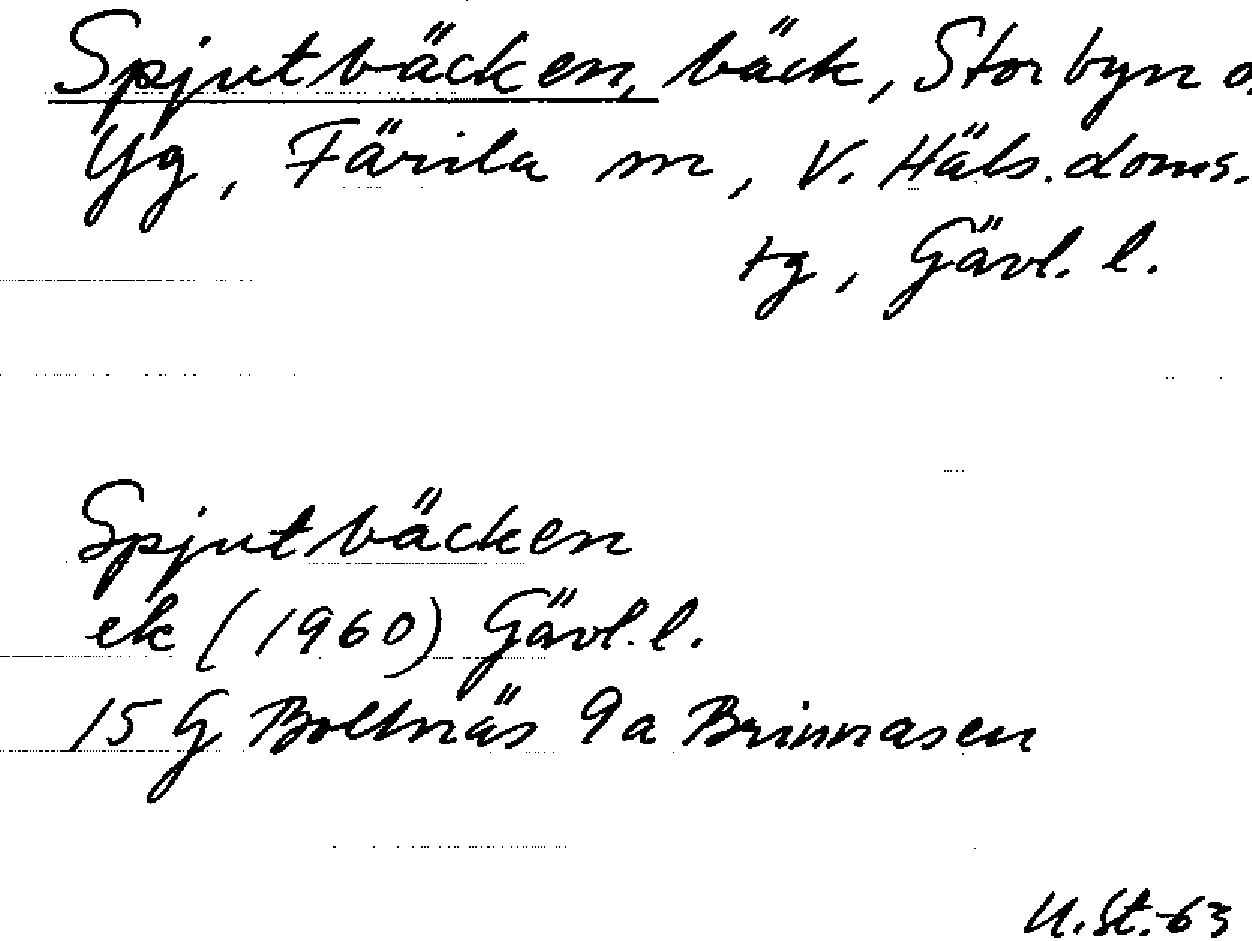 Spjutbäcken, bäck, Storbyn o.
Yg, Färila sn, V. Häls. doms.
tg, Gävl. l.
Spjutbäcken
ek (1960) Gävl. l.
15 G Bollnäs 9a Brinnasen
U.St.-63